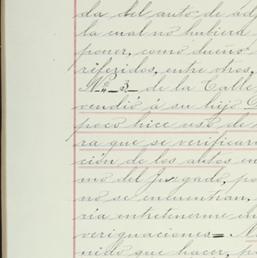 da del auto de ad
la cual no hubiera
poner, como dueño
riferidos, entre otros,
N.º 3 de la Calle
vendió á su hijo
poco hice uso de
ra que se verificar
ción de los autos en
mo del Juzgado, po
no se encuentran,
ría entretenerme en
veriguaciones.—
nido que hacer, p